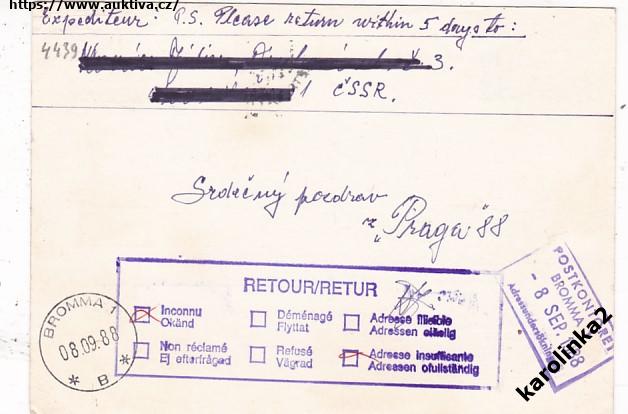 https://www.auktiva.cz/
Expediteur: P.S. Please return within 5 days to:
4439
3.
1 ČSSR.
Srdečný pozdrav
z „Praga" 88
RETOUR/RETUR
Inconnu
Okänd
Déménagé
Flyttat
Adresse illisible
Adressen oläslig
Non réclamé
Ej efterfrågad
Refusé
Vägrad
Adresse insuffisante
Adressen ofullständig
BROMMA 1
08.09.88
* B *
POSTKONTORET
BROMMA 1
- 8 SEP. 1988
Adressundersökning
karolinka2